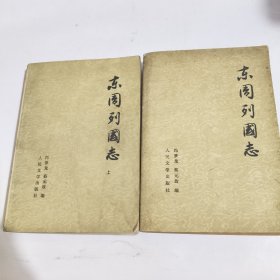 东周列國志
上
冯梦龙 蔡元放 编
人民文学出版社
东周列國志
冯梦龙 蔡元放 编
人民文学出版社